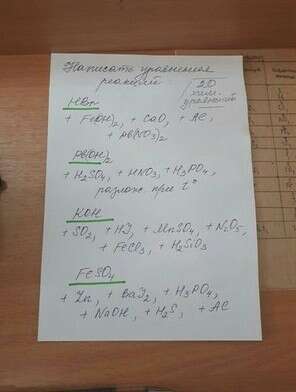 Написать уравнения
реакций:
20
хим.
уравнений
HBr
+ Fe(OH)2, + CaO, + Al,
+ Pb(NO3)2
Pb(OH)2
+ H2SO4, + HNO3, + H3PO4,
разлож. при t°
KOH
+ SO2, + HI, + MnSO4, + N2O5,
+ FeCl3, + H2SiO3
FeSO4
+ Zn, + BaI2, + H3PO4,
+ NaOH, + H2S, + Al